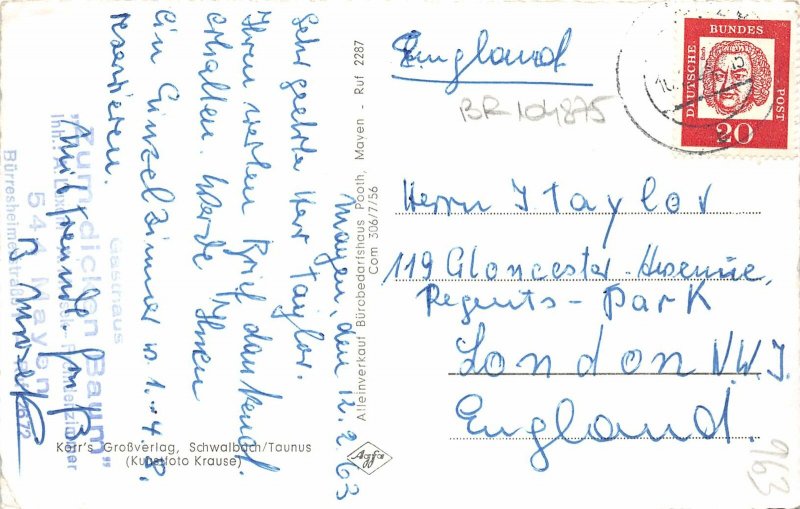 Mayen, den 12.2.63
Sehr geehrter Herr Taylor.
Ihren werten Brief dankend
erhalten. Werde Ihnen
ein Einzelzimmer v. 1.-4.8.
reservieren.
Mit freundl. Gruß
Gasthaus
"Zum dicken Baum"
544 Mayen
Bürresheimerstraße
2672
Kerr's Großverlag, Schwalbach/Taunus
(Kunstfoto Krause)
Agfa
Alleinverkauf Bürobedarfshaus Pooth, Mayen - Ruf 2287
Com 306/7/56
England
BR104875
DEUTSCHE BUNDES POST
20
Herrn J Taylor
119 Gloncester-Avenue,
Regents-Park
London N.W.1.
England.
963